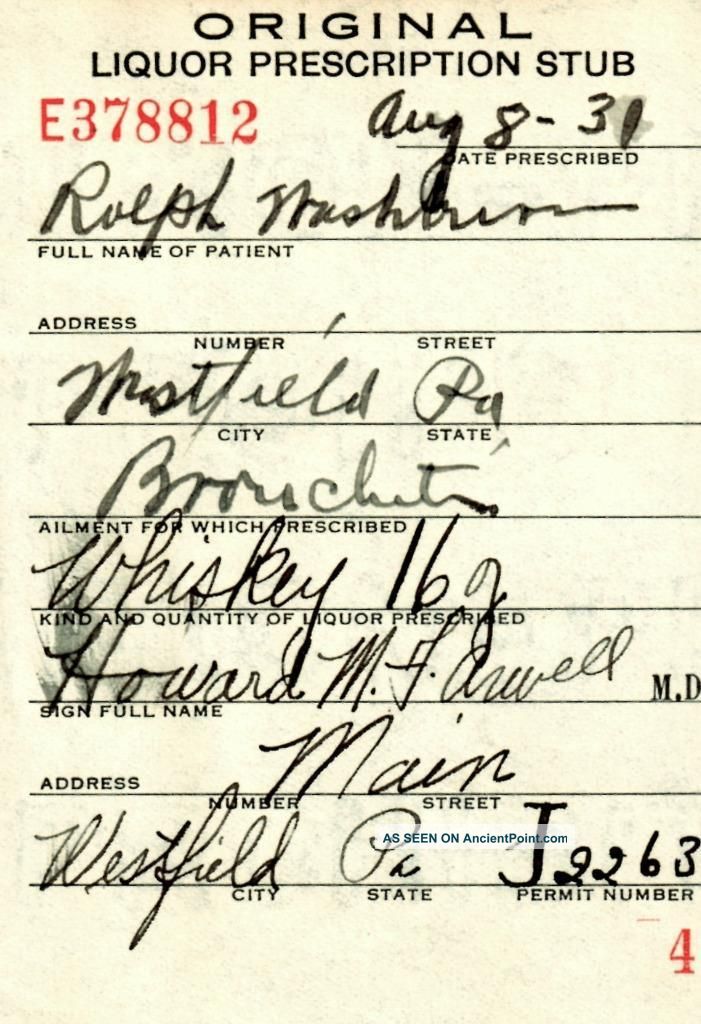 ORIGINAL
LIQUOR PRESCRIPTION STUB
E378812 Aug 8-31
DATE PRESCRIBED
Rolph Washburn
FULL NAME OF PATIENT
ADDRESS
NUMBER STREET
Westfield Pa
CITY STATE
Bronchitis
AILMENT FOR WHICH PRESCRIBED
Whiskey 16
KIND AND QUANTITY OF LIQUOR PRESCRIBED
Howard M. Farwell M.D
SIGN FULL NAME
Main
ADDRESS
NUMBER STREET
AS SEEN ON AncientPoint.com
Westfield Pa J2263
CITY STATE PERMIT NUMBER
4